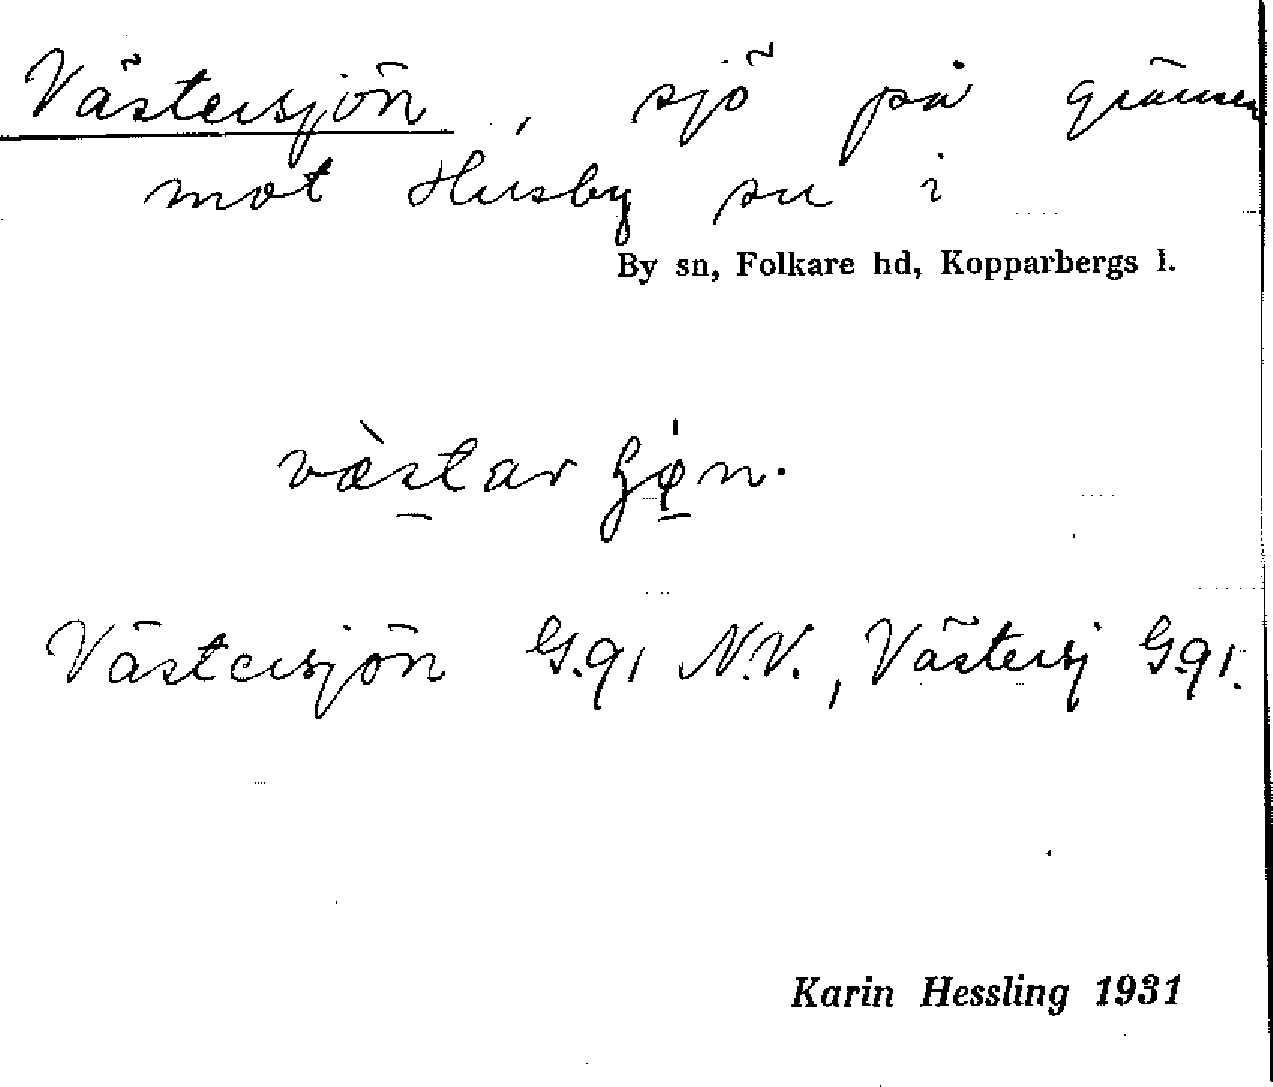 Västersjön, sjö på gränsen
mot Husby sn i
By sn, Folkare hd, Kopparbergs l.
Västersjön G.91 N.V., Västersj G.91.
Karin Hessling 1931